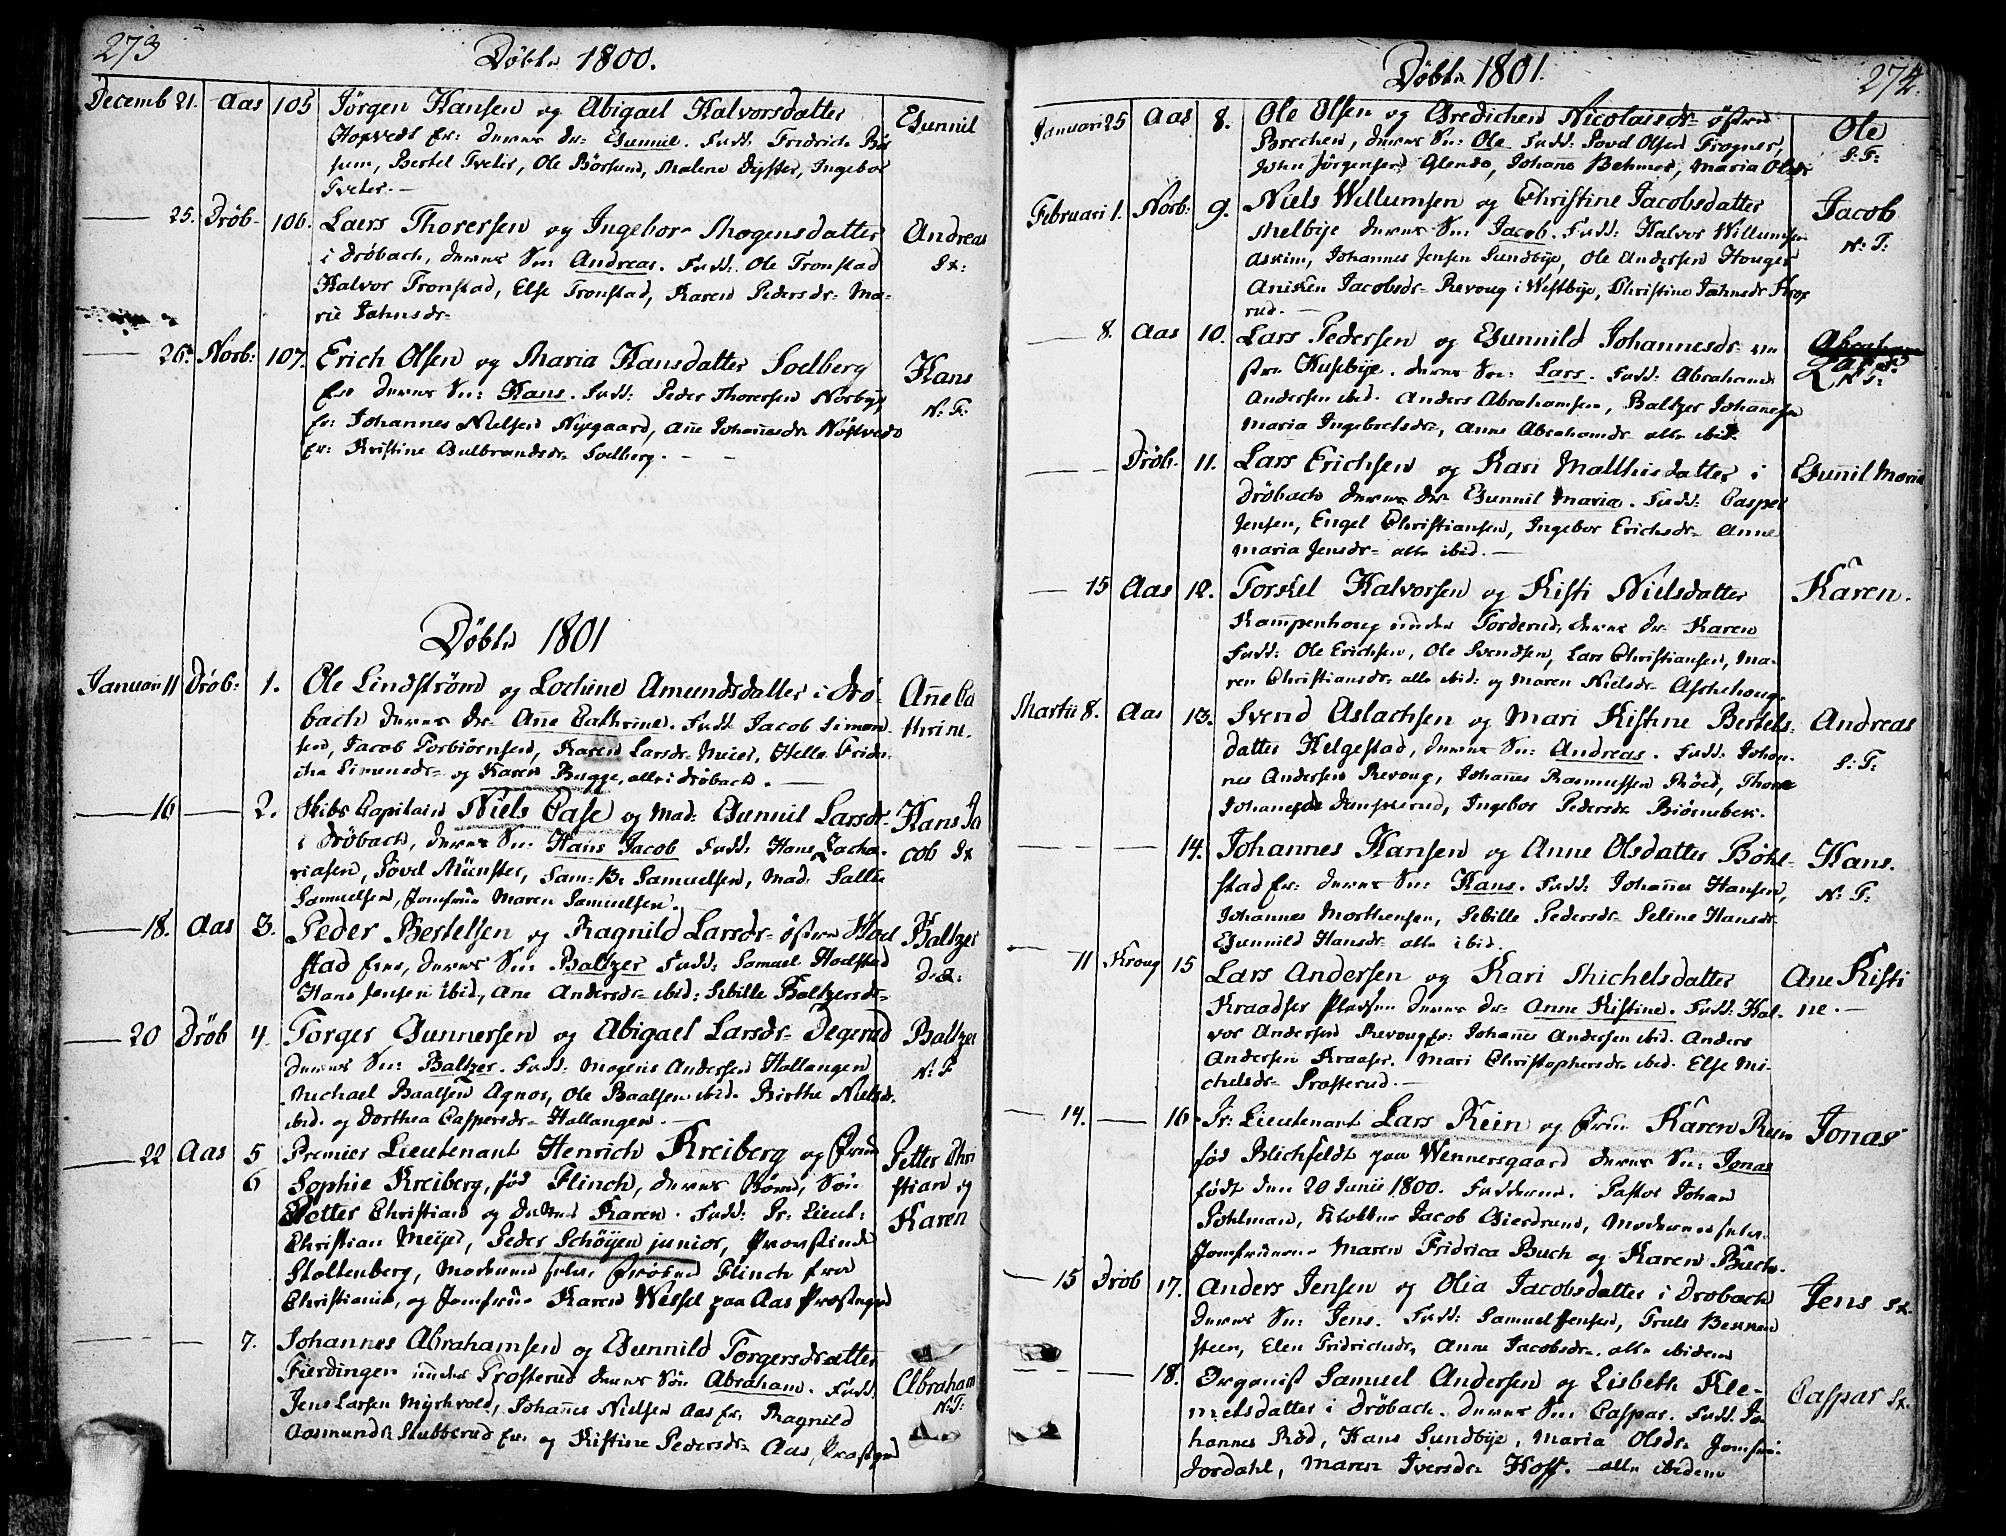 273
Döbte 1800.
Decemb 21. Aas 105 Jörgen Hansen og Abigael Halvorsdatter Gunnil
Hopvedt Er: deres Dr: Gunnil. Fadd: Fridrich Bör
sum, Bertel Tveter, Ole Börsum, Malene Dyster, Ingebor
Tveter. –
25. Dröb- 106. Laers Thorersen og Ingebor- Mogensdatter Andreas
i Dröbach, deres Sn: Andreas. Fadd: Ole Tronstad Sx:
Halvor Tronstad, Else Tronstad, Karen Pedersdr- Ma-
rie Jahnsdr-
26. Norb: 107. Erich Olsen og Maria Hansdatter Solberg Hans
Er deres Sn: Hans. Fadd: Peder Thorersen Norbye N: T:
Er: Johannes Nielsen Nyegaard, Ane Johannesdr- Nöstvedt
Er: Kristine Gulbrandsdr- Solberg. – –
Döbte 1801
Januari 11 Dröb: 1. Ole Lindström og Lochine Amundsdatter i Drö- Ane Ca
bach deres Dr- Ane Cathrine. Fadd: Jacob Simon thrine.
sen, Jacob Torbiörnsen, Karen Larsdr- Meier, Helle Fride-
cha Simensdr- og Karen Bugge, alle i Dröbach. –
16 — 2. Skibs Capitain Niels Case og Mad: Gunnil Larsdr- Hans Ja
i Dröbach, deres Sn: Hans Jacob Fadd: Hans Zacha- cob Sx
riasen, Povel Münster, Sam: B: Samuelsen, Mad: Salle
Samuelsen, Jomfrue Maren Samuelsen. –
18. Aas 3. Peder Bertelsen og Ragnild Larsdr- östre Hoel Baltzer
stad Eier, deres Sn: Baltzer Fadd: Samuel Hoelstad
Hans Jensen ibid, Ane Andersdr- ibid: Sibille Baltzersdr-
20 Dröb 4. Torger Gunnersen og Abigael Larsdr- Degerud Baltzer
deres Sn: Baltzer. Fadd: Mogens Andersen Hallangen N: T
Michael Baalsen Agnor, Ole Baalsen ibid. Birthe Nielsdr-
ibid. og Dorthea Caspersdr- Hallangen. –
22 Aas 5 Premier Lieutenant Henrich Kreiberg og Frue Petter Chri
6 Sophie Kreiberg, föd Flinch, deres Börn, Sön stian og
Petter Christian og Datter Karen. Fadd: Pr: Lieut: Karen
Christian Meijer, Peder Schöyen junior, Provstinde
Stoltenberg, Fröken Flinch fra
Christiania, og Jomfrue Karen Wessel paa Aas Præstegrd
7. Johannes Abrahamsen og Gunnild Torgersdatter
Fierdingen under Frosterud deres Sön Abraham. Fadd: Abraham
Jens Larsen Myrhvold, Johanes Nielsen Aas Er: Ragnild N: T:
Aasmundr Stubberud Er: og Kistine Pedersdr- Aas, Præstgrd
274.
Döbte 1801.
Januari 25 Aas 8. Ole Olsen og Gredichen Nicolaisdr- östre Ole
Brechen, deres Sn: Ole Fadd: Povel Olsen Frogner, S: T:
John Jörgensen Glende, Johanes Behmer, Maria Olsdr
Februari 1. Norb: 9. Niels Willumsen og Christine Jacobsdatter Jacob
Melbye deres Sn: Jacob. Fadd: Halvor Willumsen N: T:
Askim, Johannes Jensen Sundbye, Ole Andersen Houger
Anisken Jacobsdr- Revoug i Westbye, Christine Jahnsdr Fros
rud. –
8. Aas 10. Lars Pedersen og Gunnild Johannesdr- ve Abraham
stre Husebye. deres Sn: Lars. Fadd: Abraham Lars.
Andersen ibid. Anders Abrahamsen, Baltzer Johanesen N: T:
Maria Ingebretsdr-, Anne Abrahamdr- alle ibid.
Dröb. 11. Lars Erichsen og Kari Matthisdatter i Gunnil Maria
Dröbach deres Dr Gunnil Maria. Fadd: Casper
Jensen, Engel Christiansen, Ingebor Erichsdr- Anne
Maria Jensdr- alle ibid. –
15 Aas 12. Torskel Halvorsen og Kisti Nielsdatter Karen.
Kampenhoug under Torderud, deres Dr- Karen
Fadd: Ole Erichsen, Ole Svendsen, Lars Christiansen, Ma-
ren Christiansdr- alle ibid: og Maren Nielsdr- Aschehoug.
Martii 8. Aas 13. Svend Aslachsen og Mari Kistine Bertels- Andreas
datter Helgestad, deres Sn: Andreas. Fadd: Johan- S: T:
nes Andersen Revoug, Johanes Rasmussen Röed, Thore
Johanesdr Danskerud, Ingebor Pedersdr Biörnebek.
14. Johannes Hansen og Anne Olsdatter Böhl- Hans.
stad Er: deres Sn: Hans. Fadd: Johanes Hansen, N: T:
Johannes Morthensen, Sebille Pedersdr- Seline Hansdr-
Gunnild Hansdr- alle ibid.
11 Kroug 15 Lars Andersen og Kari Michelsdatter Ane Kisti
Kraadser Pladsen deres Dr- Anne Kistine. Fadd: Hal- ne. –
vor Andersen Revoug Er: Johanes Andersen ibid. Anders
Andersen Kraaser. Mari Christophersdr- ibid. Else Mi-
chelsdr- Frosterud. –
14. — 16 Pr: Lieutenant Lars Rein og Frue Karen Rein Jonas
föd Blichfeldt paa Wennersgaard deres Sn: Jonas
födt den 20 Junii 1800. Fadderne. Pastor Johan
Pohlman, Klokker Jacob Gierdrund, Moderen selv,
Jomfruerne Maren Fridrica Buch og Karen Buch.
15 Dröb 17. Anders Jensen og Olia Jacobsdatter i Drobach Jens Sx.
deres Sn: Jens. Fadd: Samuel Jensen, Truls Bennen
steen, Elen Fridrichsdr, Anne Jacobsdr-. alle ibidem
18. Organist Samuel Andersen og Lisbeth Kle- Caspar Sx.
metsdatter i Dröbach. deres Sn: Caspar. Fadd: Jo-
hannes Röd, Hans Sundbye, Maria Olsdr- Jomfrue
Jordahl, Maren Iversdr- Hoff. – alle ibidem